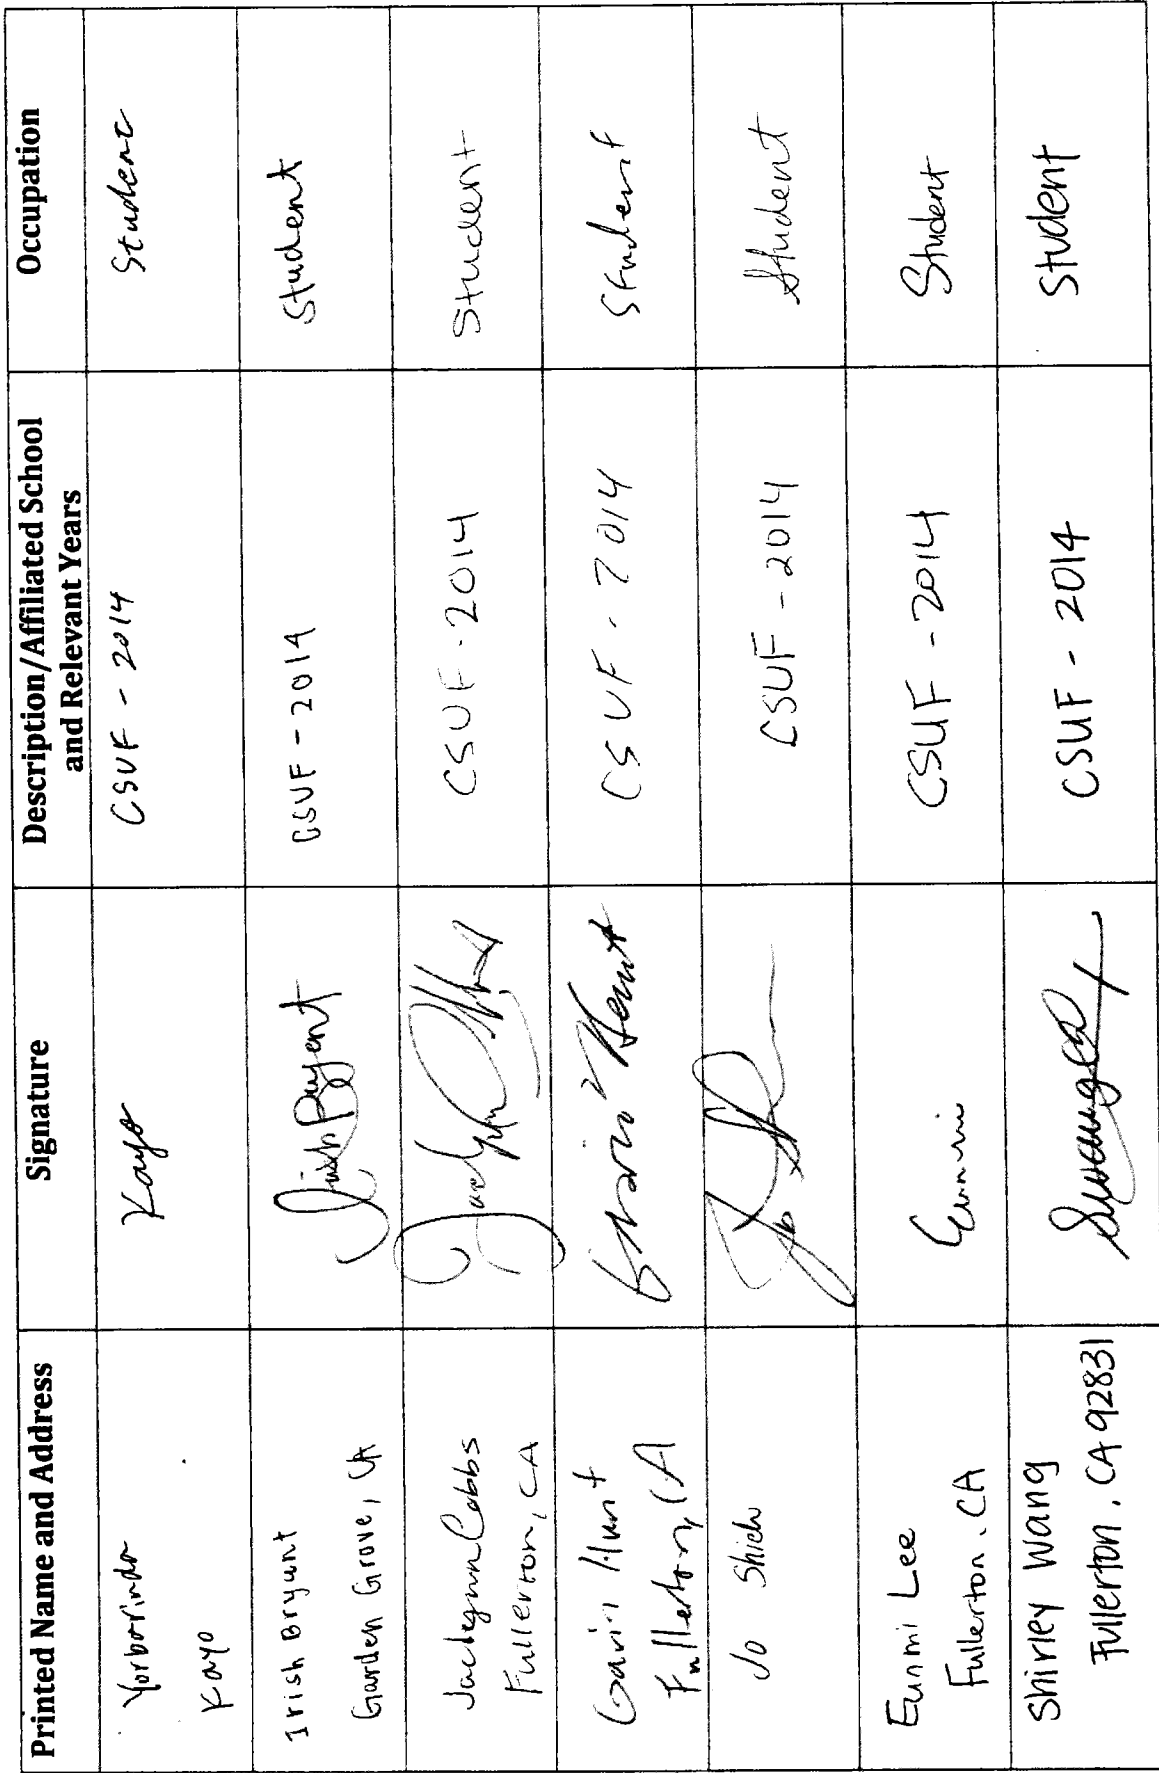 Printed Name and Address
Signature
Description/Affiliated School
and Relevant Years
Occupation
Yorborinda
Kayo
Kayo
CSUF - 2014
Student
Irish Bryant
Garden Grove, CA
Irish Bryant
CSUF - 2014
Student
Jaclynn Cobbs
Fullerton, CA
CSUF - 2014
Student
Gavin Hunt
Fullerton, CA
CSUF - 2014
Student
Jo Shieh
CSUF - 2014
Student
Eunmi Lee
Fullerton, CA
Eunmi
CSUF - 2014
Student
Shirley Wang
Fullerton, CA 92831
CSUF - 2014
Student